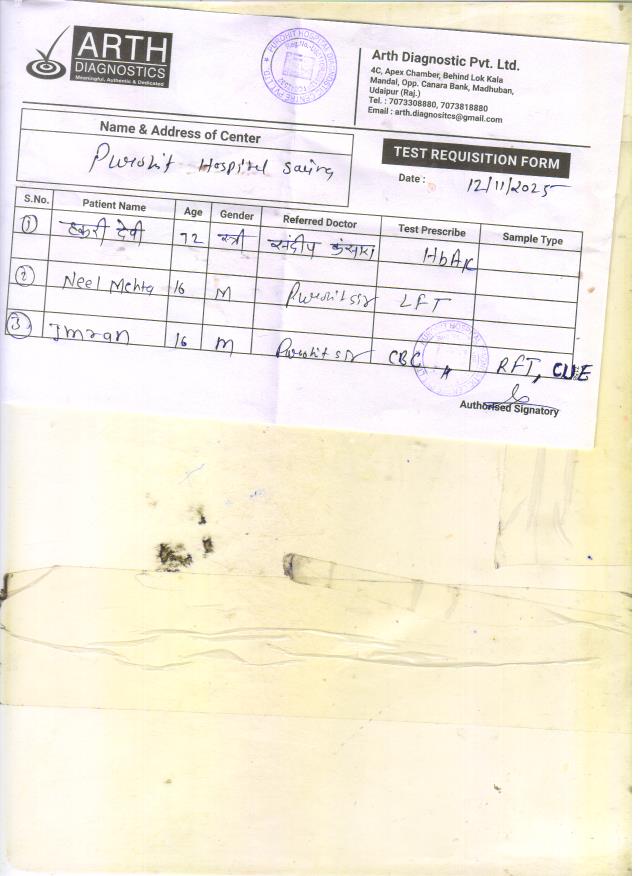 ARTH
DIAGNOSTICS
Meaningful, Authentic & Dedicated
Arth Diagnostic Pvt. Ltd.
4C, Apex Chamber, Behind Lok Kala
Mandal, Opp. Canara Bank, Madhuban,
Udaipur (Raj.)
Tel. : 7073308880, 7073818880
Email : arth.diagnositcs@gmail.com
Name & Address of Center
Purohit Hospital
TEST REQUISITION FORM
Date : 12/11/2025
S.No. Patient Name Age Gender Referred Doctor Test Prescribe Sample Type
1 देवी 72 स्त्री संदीप कंसारा HbA1c
2 Neel Mehta 16 M Purohit sir LFT
3 Imran 16 M Purohit sir CBC, RFT, CUE
Authorised Signatory